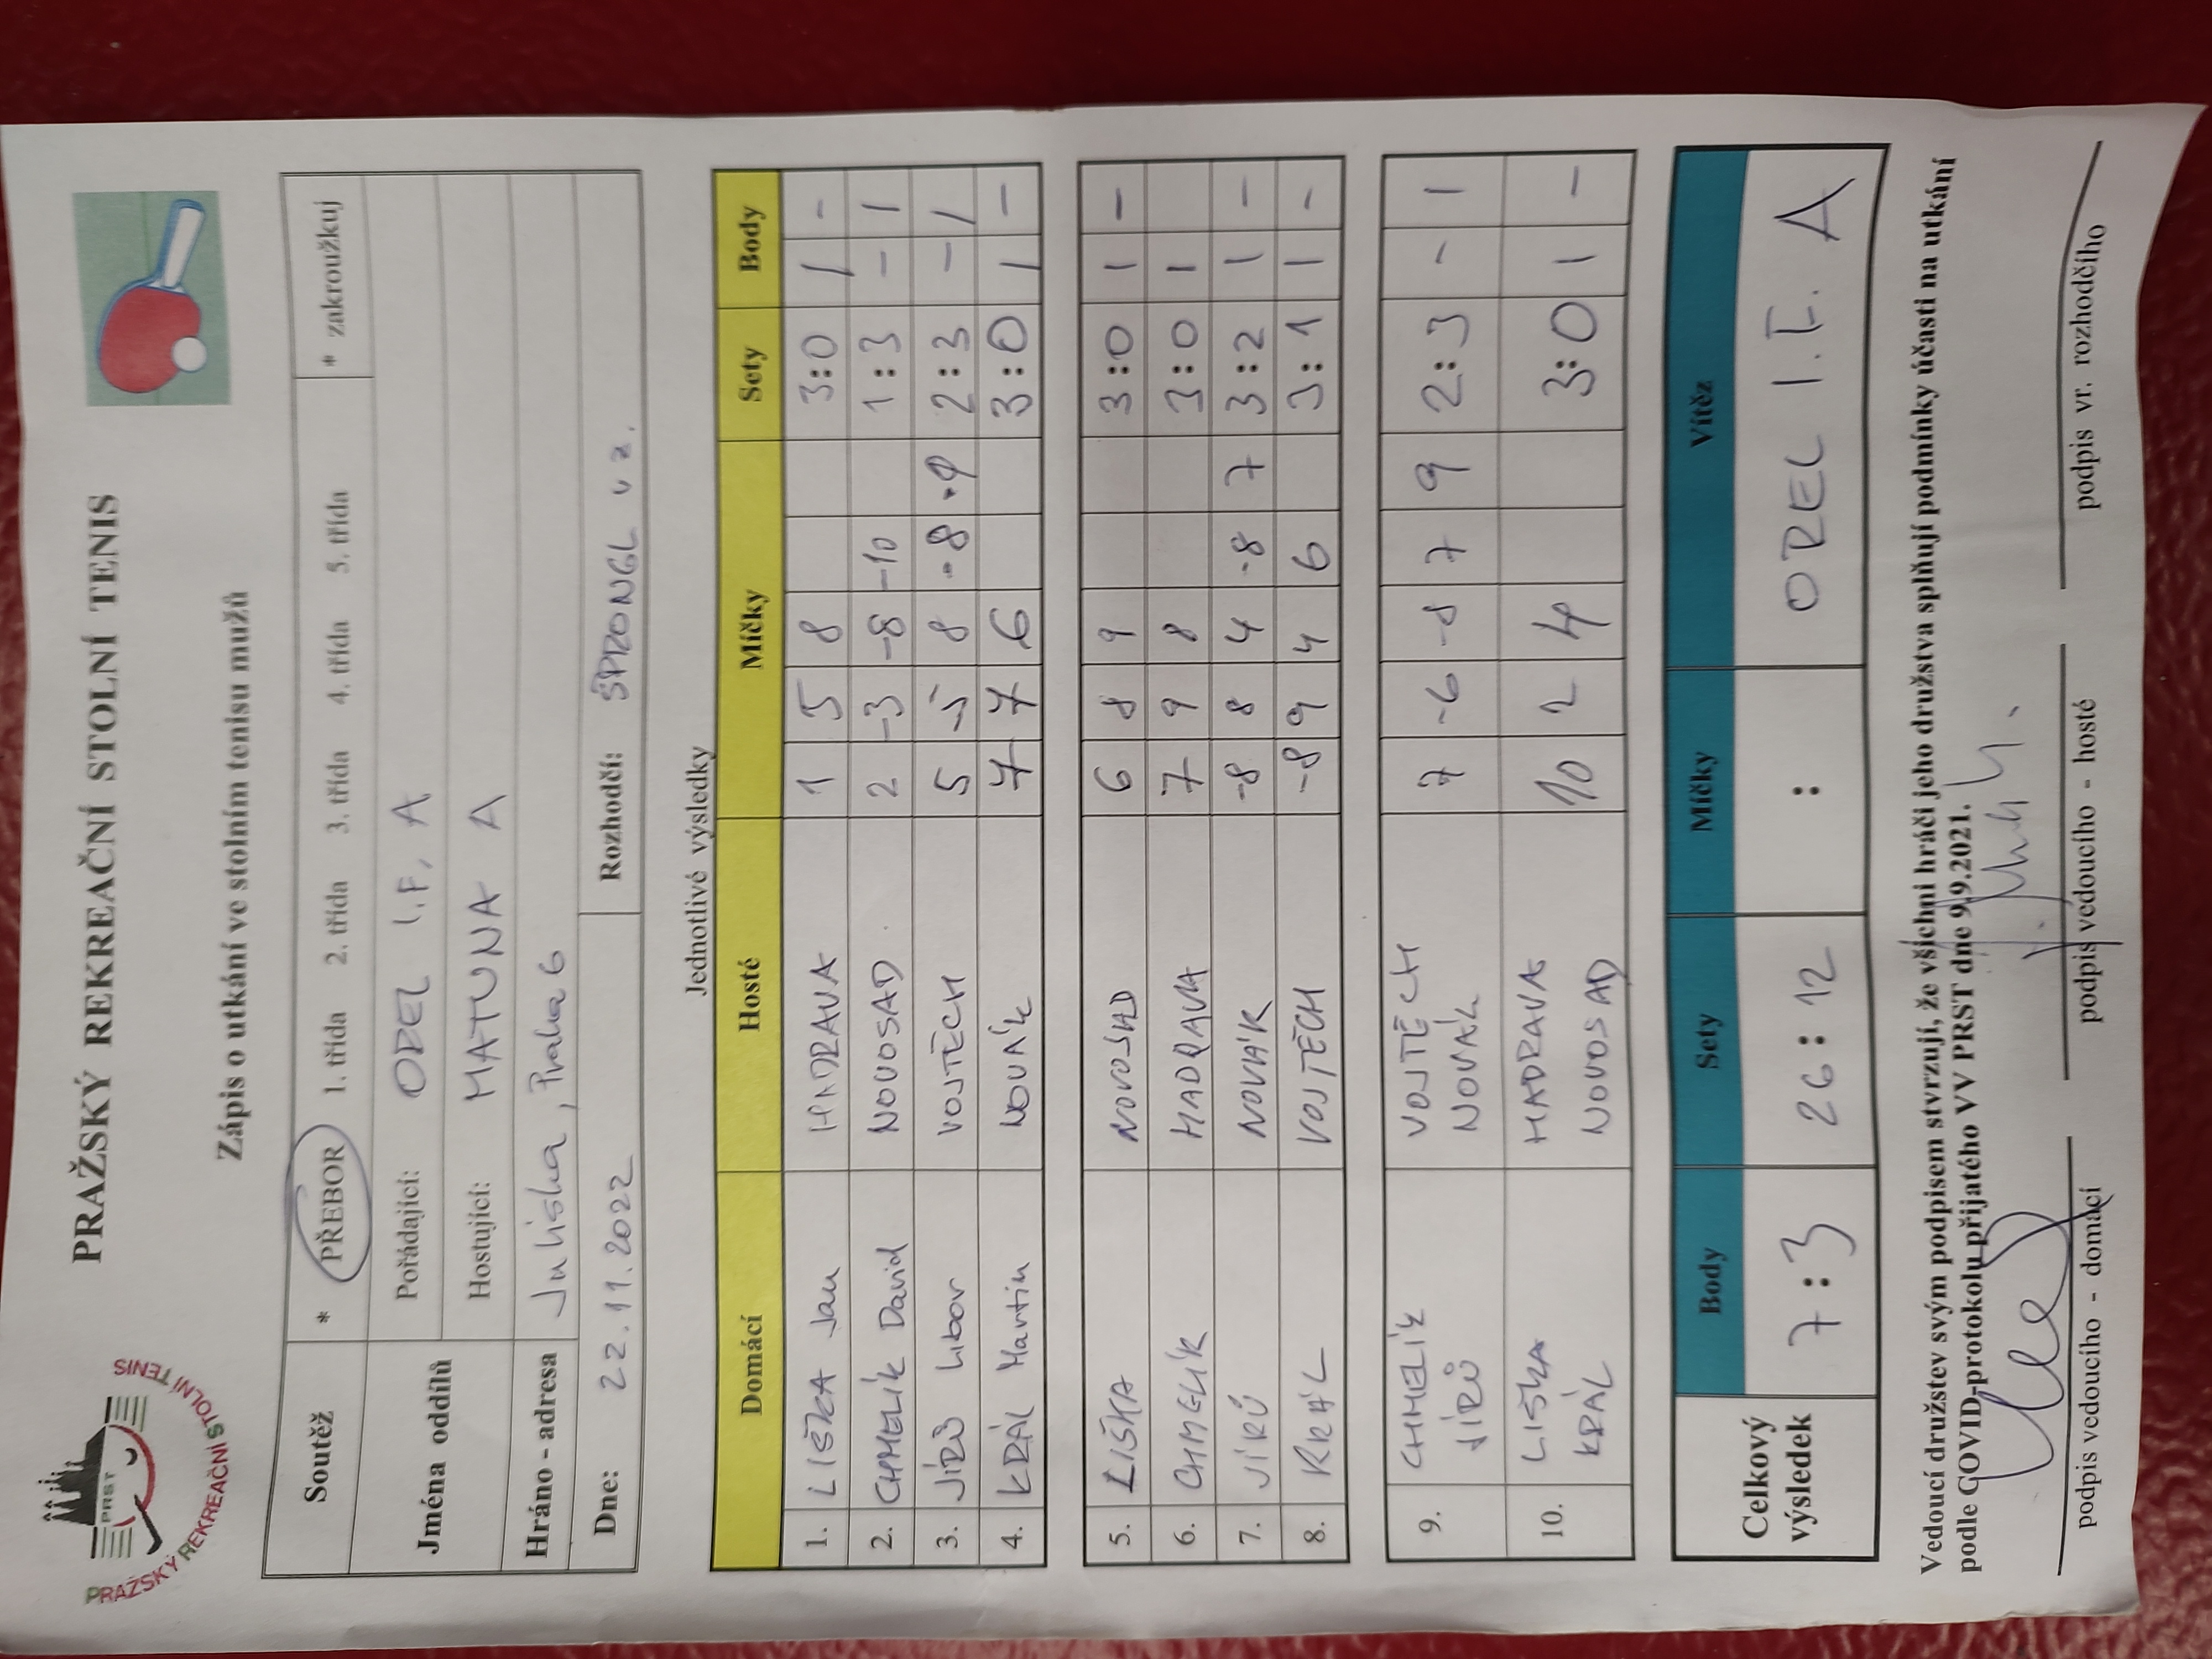 PRAŽSKÝ REKREAČNÍ STOLNÍ TENIS
PRST
PRAŽSKÝ REKREAČNÍ STOLNÍ TENIS
Zápis o utkání ve stolním tenisu mužů
Soutěž * PŘEBOR 1. třída 2. třída 3. třída 4. třída 5. třída * zakroužkuj
Jména oddílů Pořádající: OREL I.F. A
Hostující: MATUNA A
Hráno - adresa Juliska, Praha 6
Dne: 22.11.2022 Rozhodčí: ŠPRONGL vz.
Jednotlivé výsledky
Domácí Hosté Míčky Sety Body
1. LIŠKA Jan HADRAVA 1 5 8 3:0 1 -
2. CHMELÍK David NOVOSAD 2 -3 -8 -10 1:3 - 1
3. JÍRŮ Libor VOJTĚCH 5 -5 8 -8 -9 2:3 - 1
4. KRÁL Martin NOVÁK 7 7 6 3:0 1 -
5. LIŠKA NOVOSAD 6 8 9 3:0 1 -
6. CHMELÍK HADRAVA 7 9 8 3:0 1
7. JÍRŮ NOVÁK -8 8 4 -8 7 3:2 1 -
8. KRÁL VOJTĚCH -8 9 4 6 3:1 1 -
9. CHMELÍK VOJTĚCH 7 -6 -8 7 9 2:3 - 1
JÍRŮ NOVÁK
10. LIŠKA HADRAVA 10 2 4 3:0 1 -
KRÁL NOVOSAD
Celkový výsledek Body Sety Míčky Vítěz
7:3 26:12 : OREL I.F. A
Vedoucí družstev svým podpisem stvrzují, že všichni hráči jeho družstva splňují podmínky účasti na utkání
podle COVID-protokolu přijatého VV PRST dne 9.9.2021.
podpis vedoucího - domácí podpis vedoucího - hosté podpis vr. rozhodčího